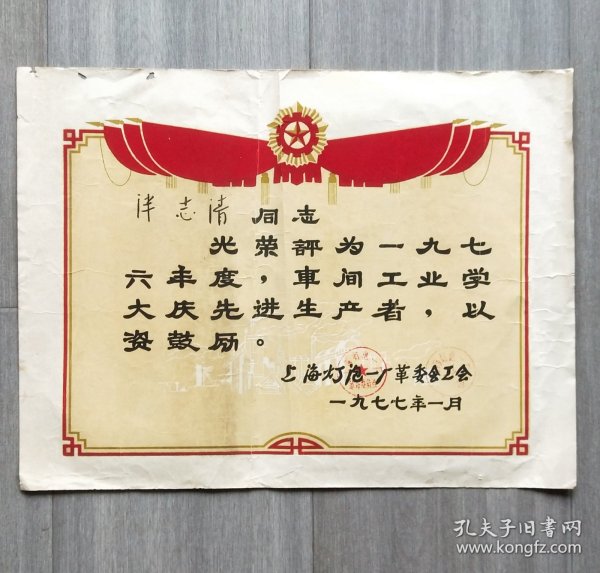 志清 同志
光荣評为一九七
六年度，車间工业学
大庆先进生产者，以
资鼓励。
上海灯泡一厂革委会工会
一九七七年一月
孔夫子旧书网
www.kongfz.com